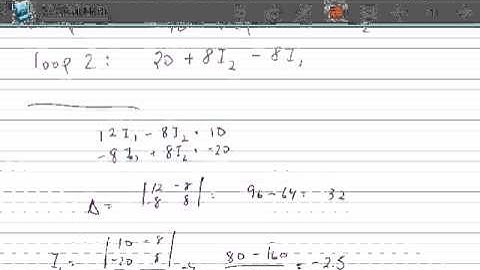 loop 2: 20 + 8I₂ - 8I₁
12I₁ - 8I₂ = 10
-8I₁ + 8I₂ = -20
Δ = |12 -8| = 96 - 64 = 32
|-8 8|
I₁ = |10 -8| 80 - 160 = -2.5
|-20 8|